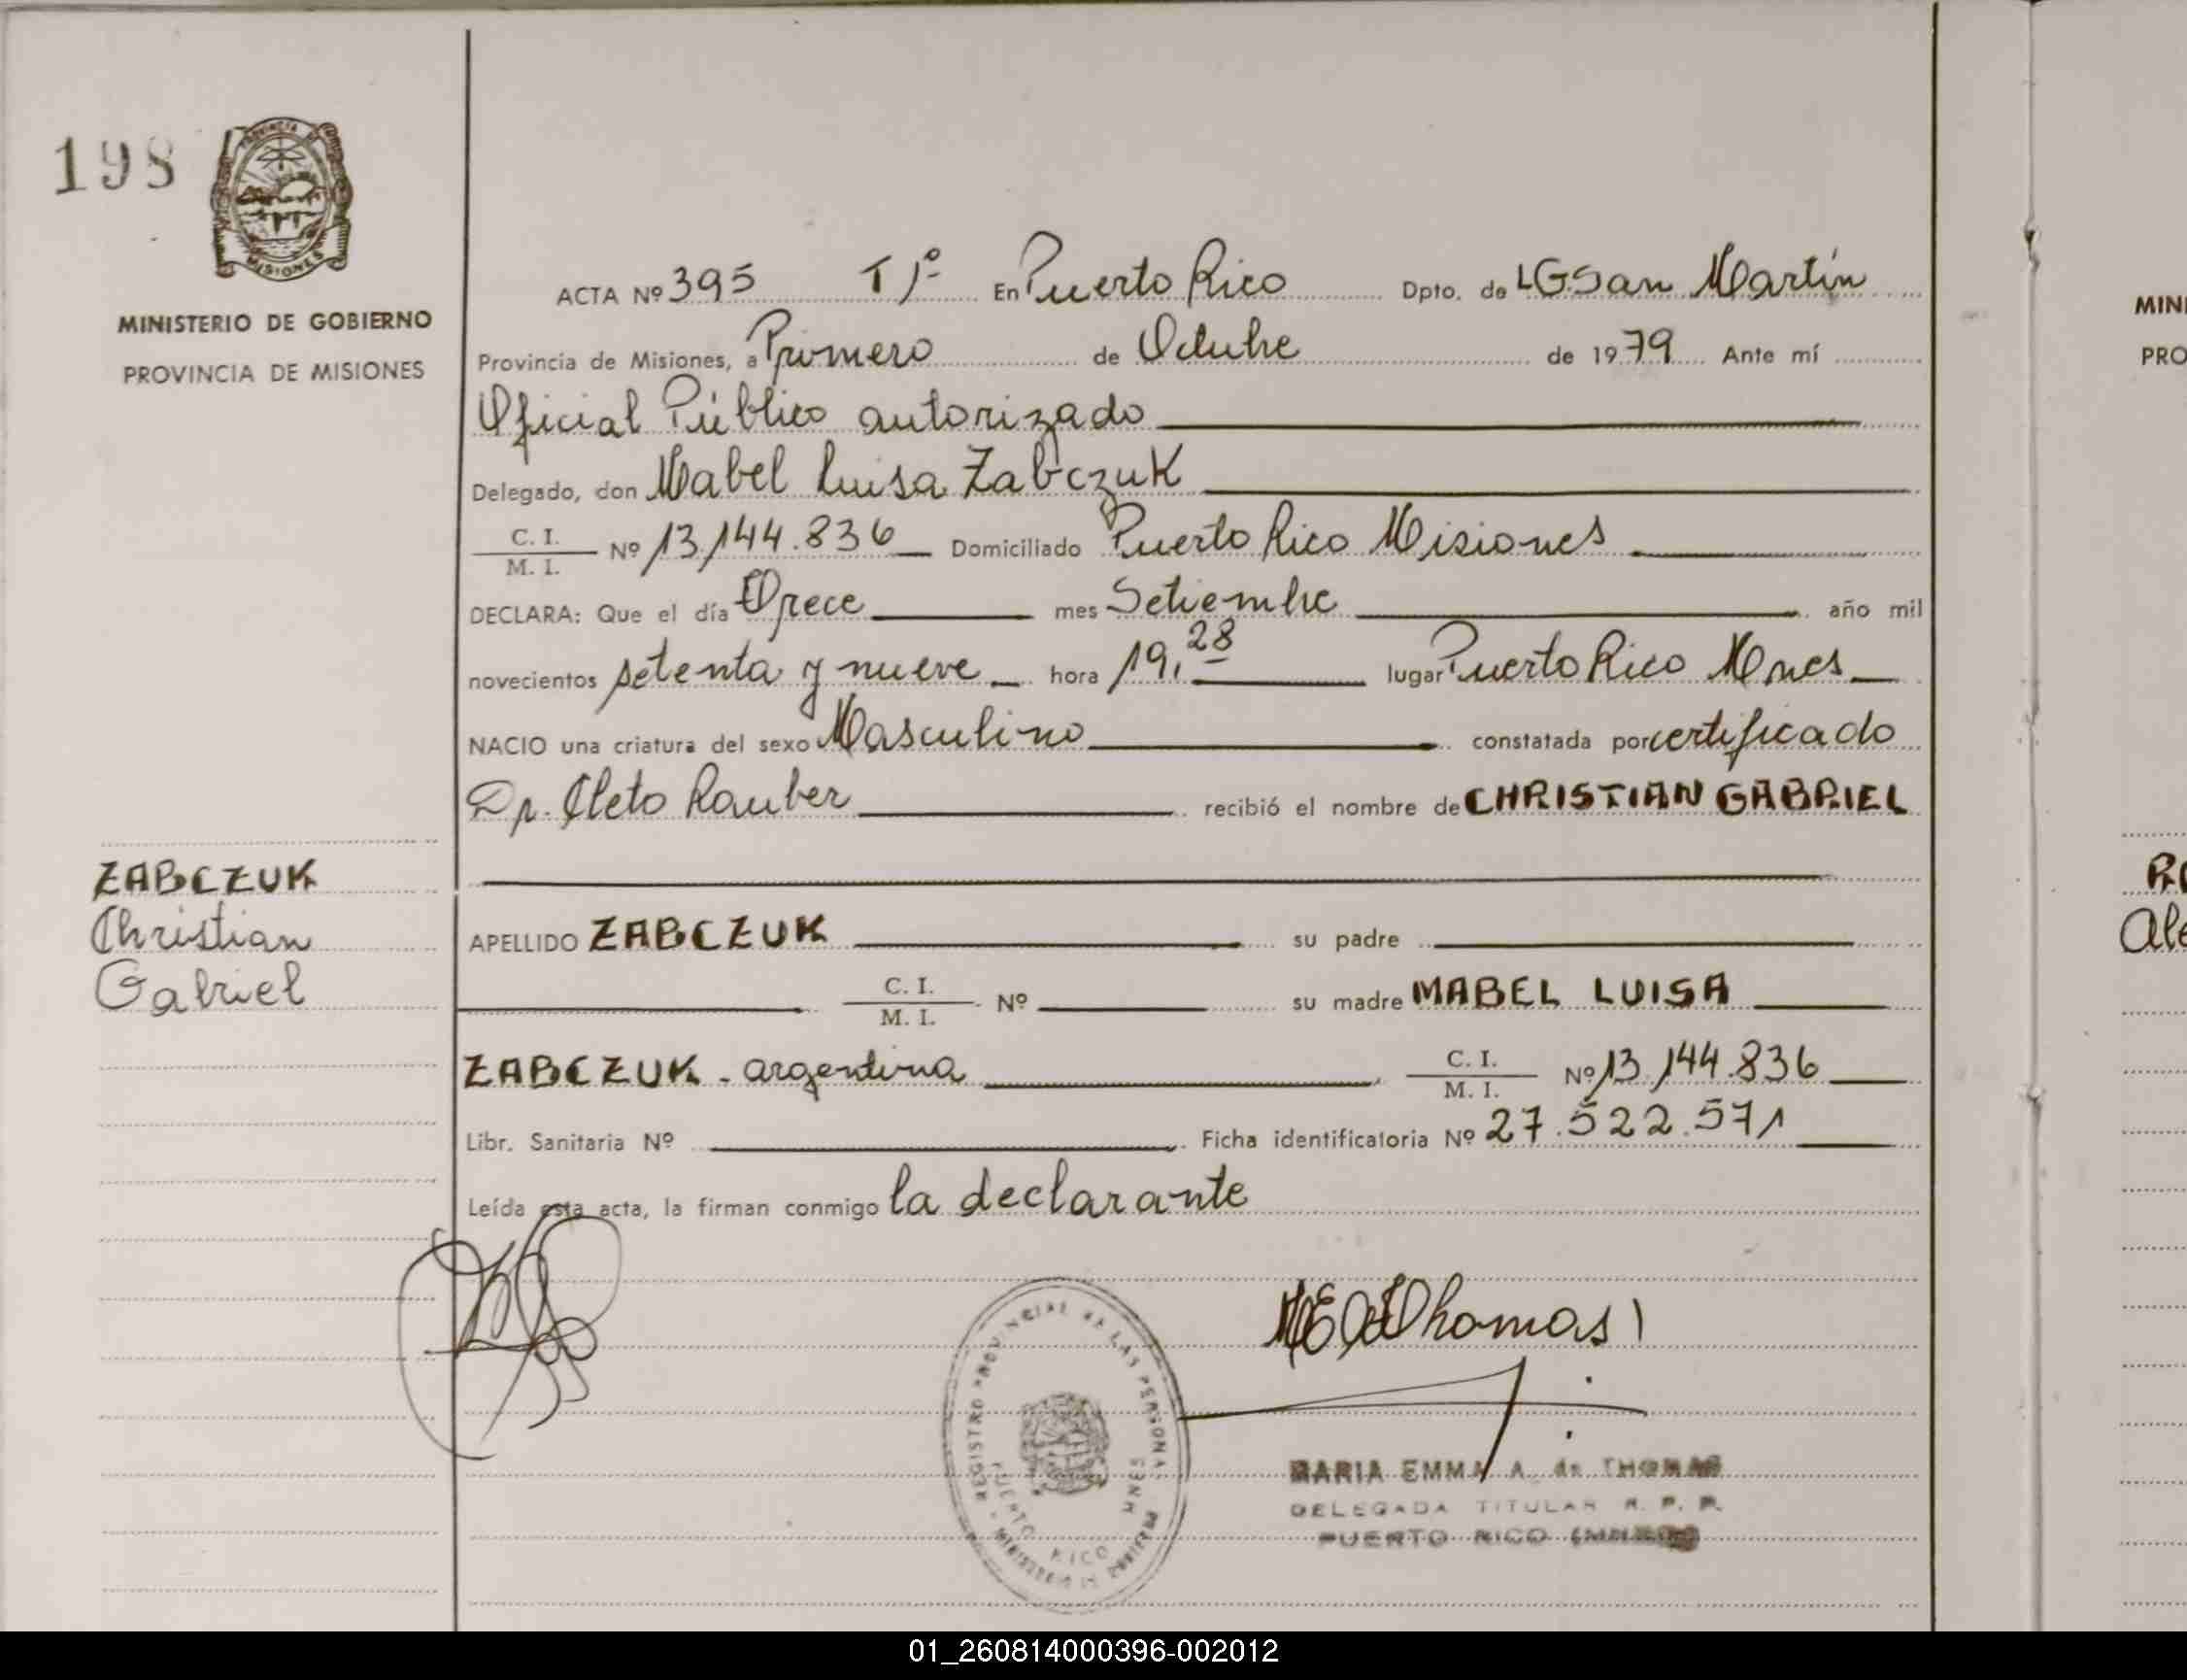 198
PROVINCIA DE
MISIONES
MINISTERIO DE GOBIERNO
PROVINCIA DE MISIONES
ACTA Nº 395 T 1º En Puerto Rico Dpto. de LGSan Martín
Provincia de Misiones, a Primero de Octubre de 1979 Ante mí
Oficial Público autorizado
Delegado, don Mabel Luisa Zabczuk
C. I.
M. I. Nº 13.144.836 Domiciliado Puerto Rico Misiones
DECLARA: Que el día mes Setiembre año mil
novecientos setenta y nueve hora 19,28 lugar Puerto Rico Mnes
NACIO una criatura del sexo Masculino constatada por certificado
Dr. Cleto Rauber recibió el nombre de CHRISTIAN GABRIEL
ZABCZUK
Christian
Gabriel
APELLIDO ZABCZUK su padre
C. I.
M. I. Nº su madre MABEL LUISA
ZABCZUK - argentina C. I.
M. I. Nº 13.144.836
Libr. Sanitaria Nº Ficha identificatoria Nº 27.522.571
Leída esta acta, la firman conmigo la declarante
REGISTRO PROVINCIAL DE LAS PERSONAS
PUERTO RICO MNES
MINISTERIO DE GOBIERNO
Thomas
MARIA EMMA A. de THOMAS
DELEGADA TITULAR R. P. P.
PUERTO RICO
MINI
PRO
Ale
01_260814000396-002012